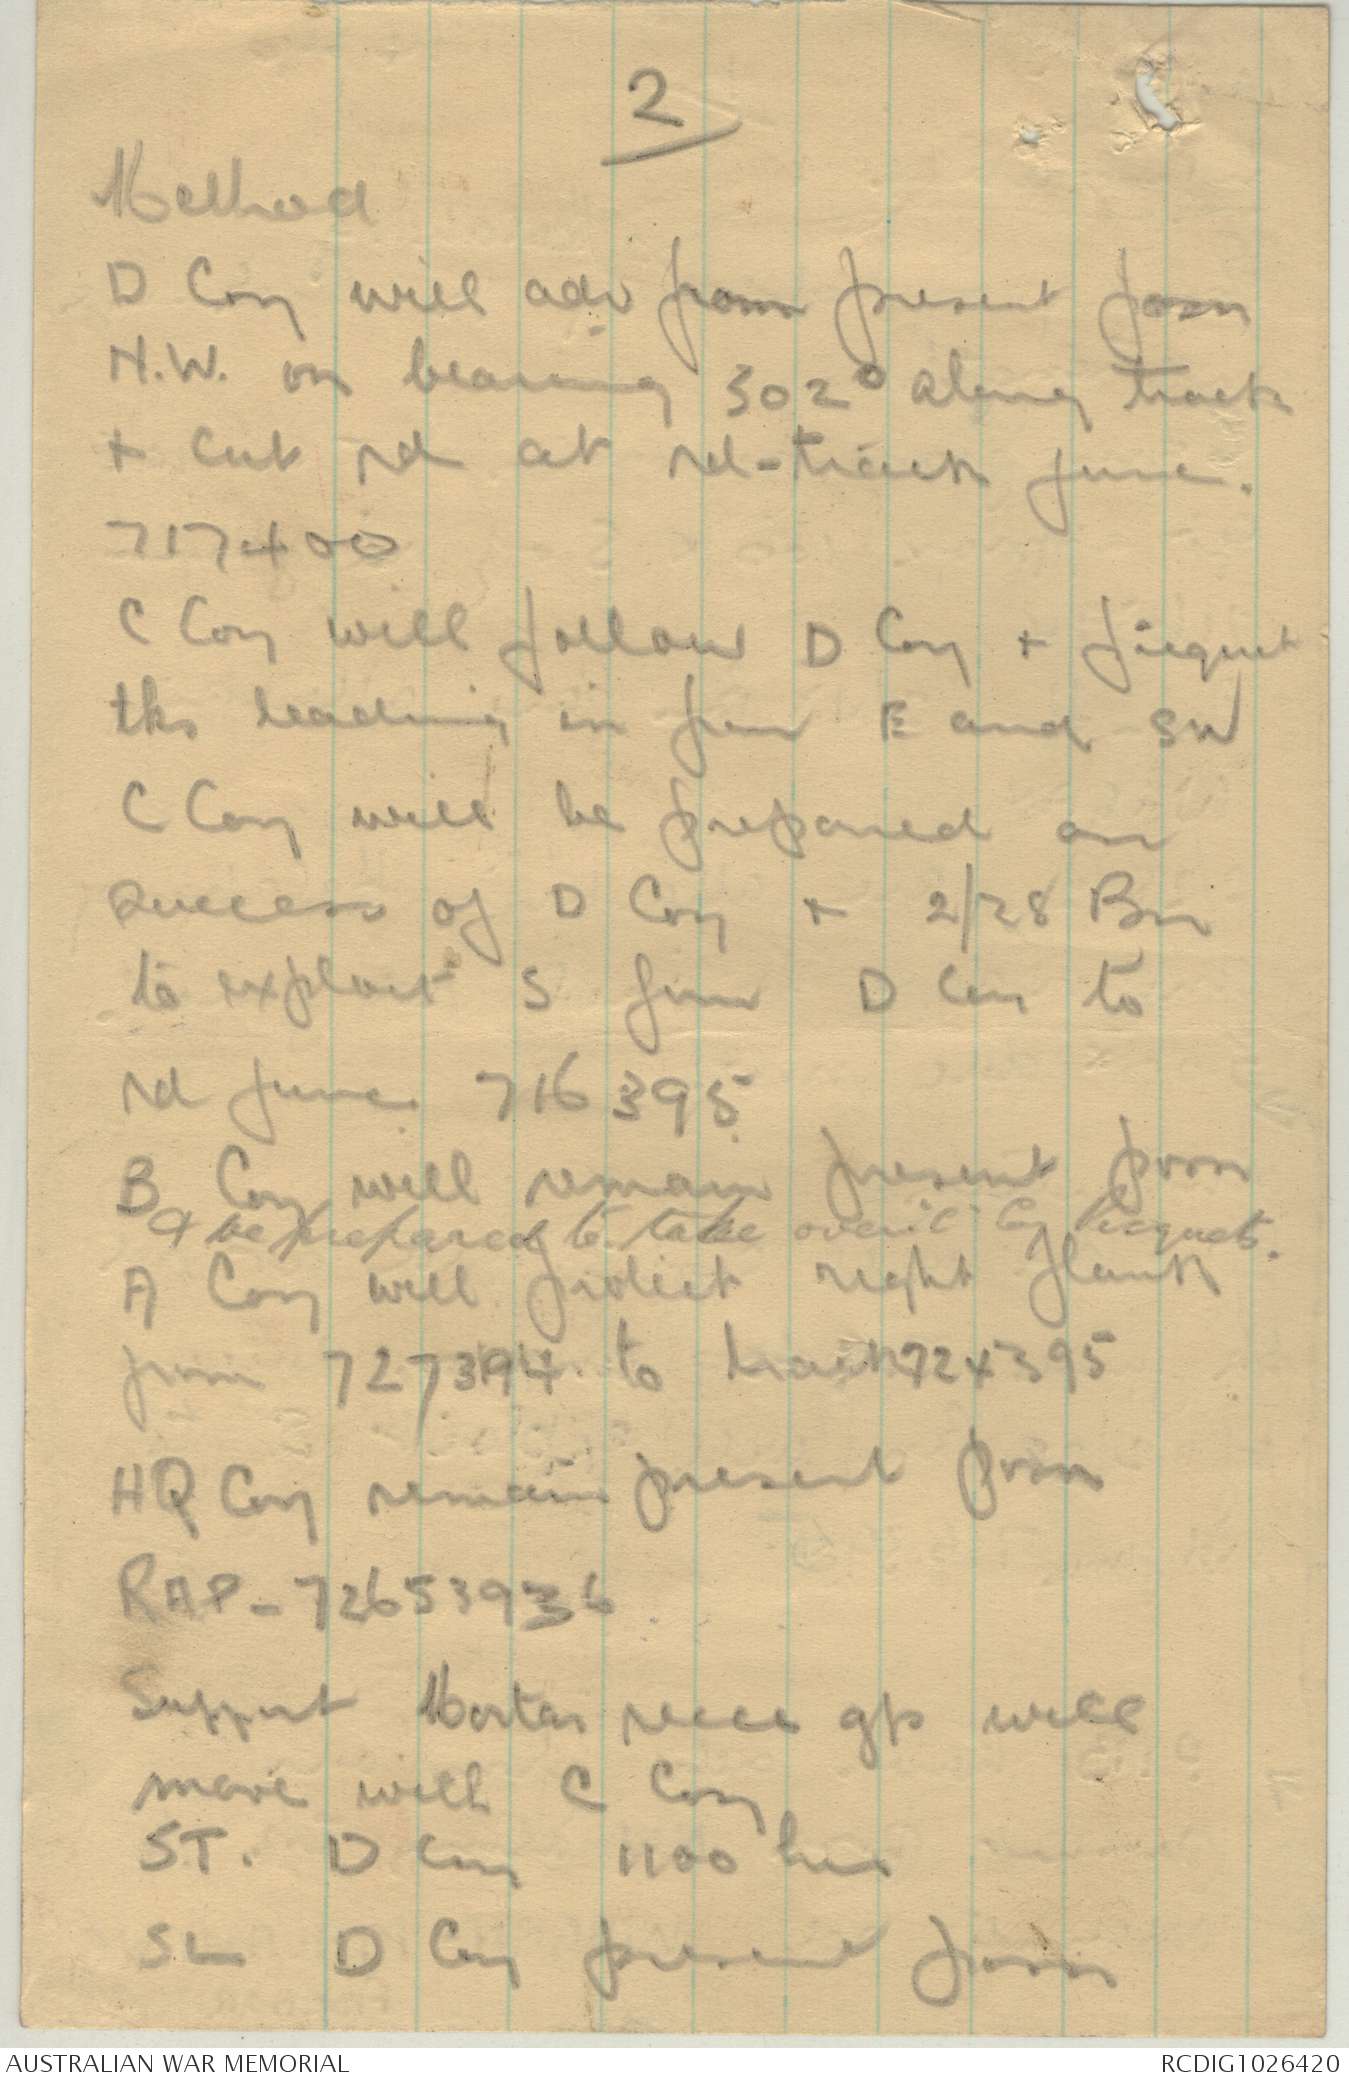 2
Method
D Coy will adv from present posn
N.W. on bearing 302° along track
+ cut rd at rd-track junc.
717400
C Coy will follow D Coy + picquet
tks leading in from E and SW
C Coy will be prepared on
success of D Coy + 2/28 Bn
to exploit S from D Coy to
rd junc. 716395
B Coy will remain present posn
& be prepared to take over C Coy picquets.
A Coy will protect right flank
from 727394 to track 724395
HQ Coy remain present posn
RAP - 72653936
Support Mortar recce gp will
move with C Coy
ST. D Coy 1100 hrs
SL D Coy present posn
AUSTRALIAN WAR MEMORIAL
RCDIG1026420